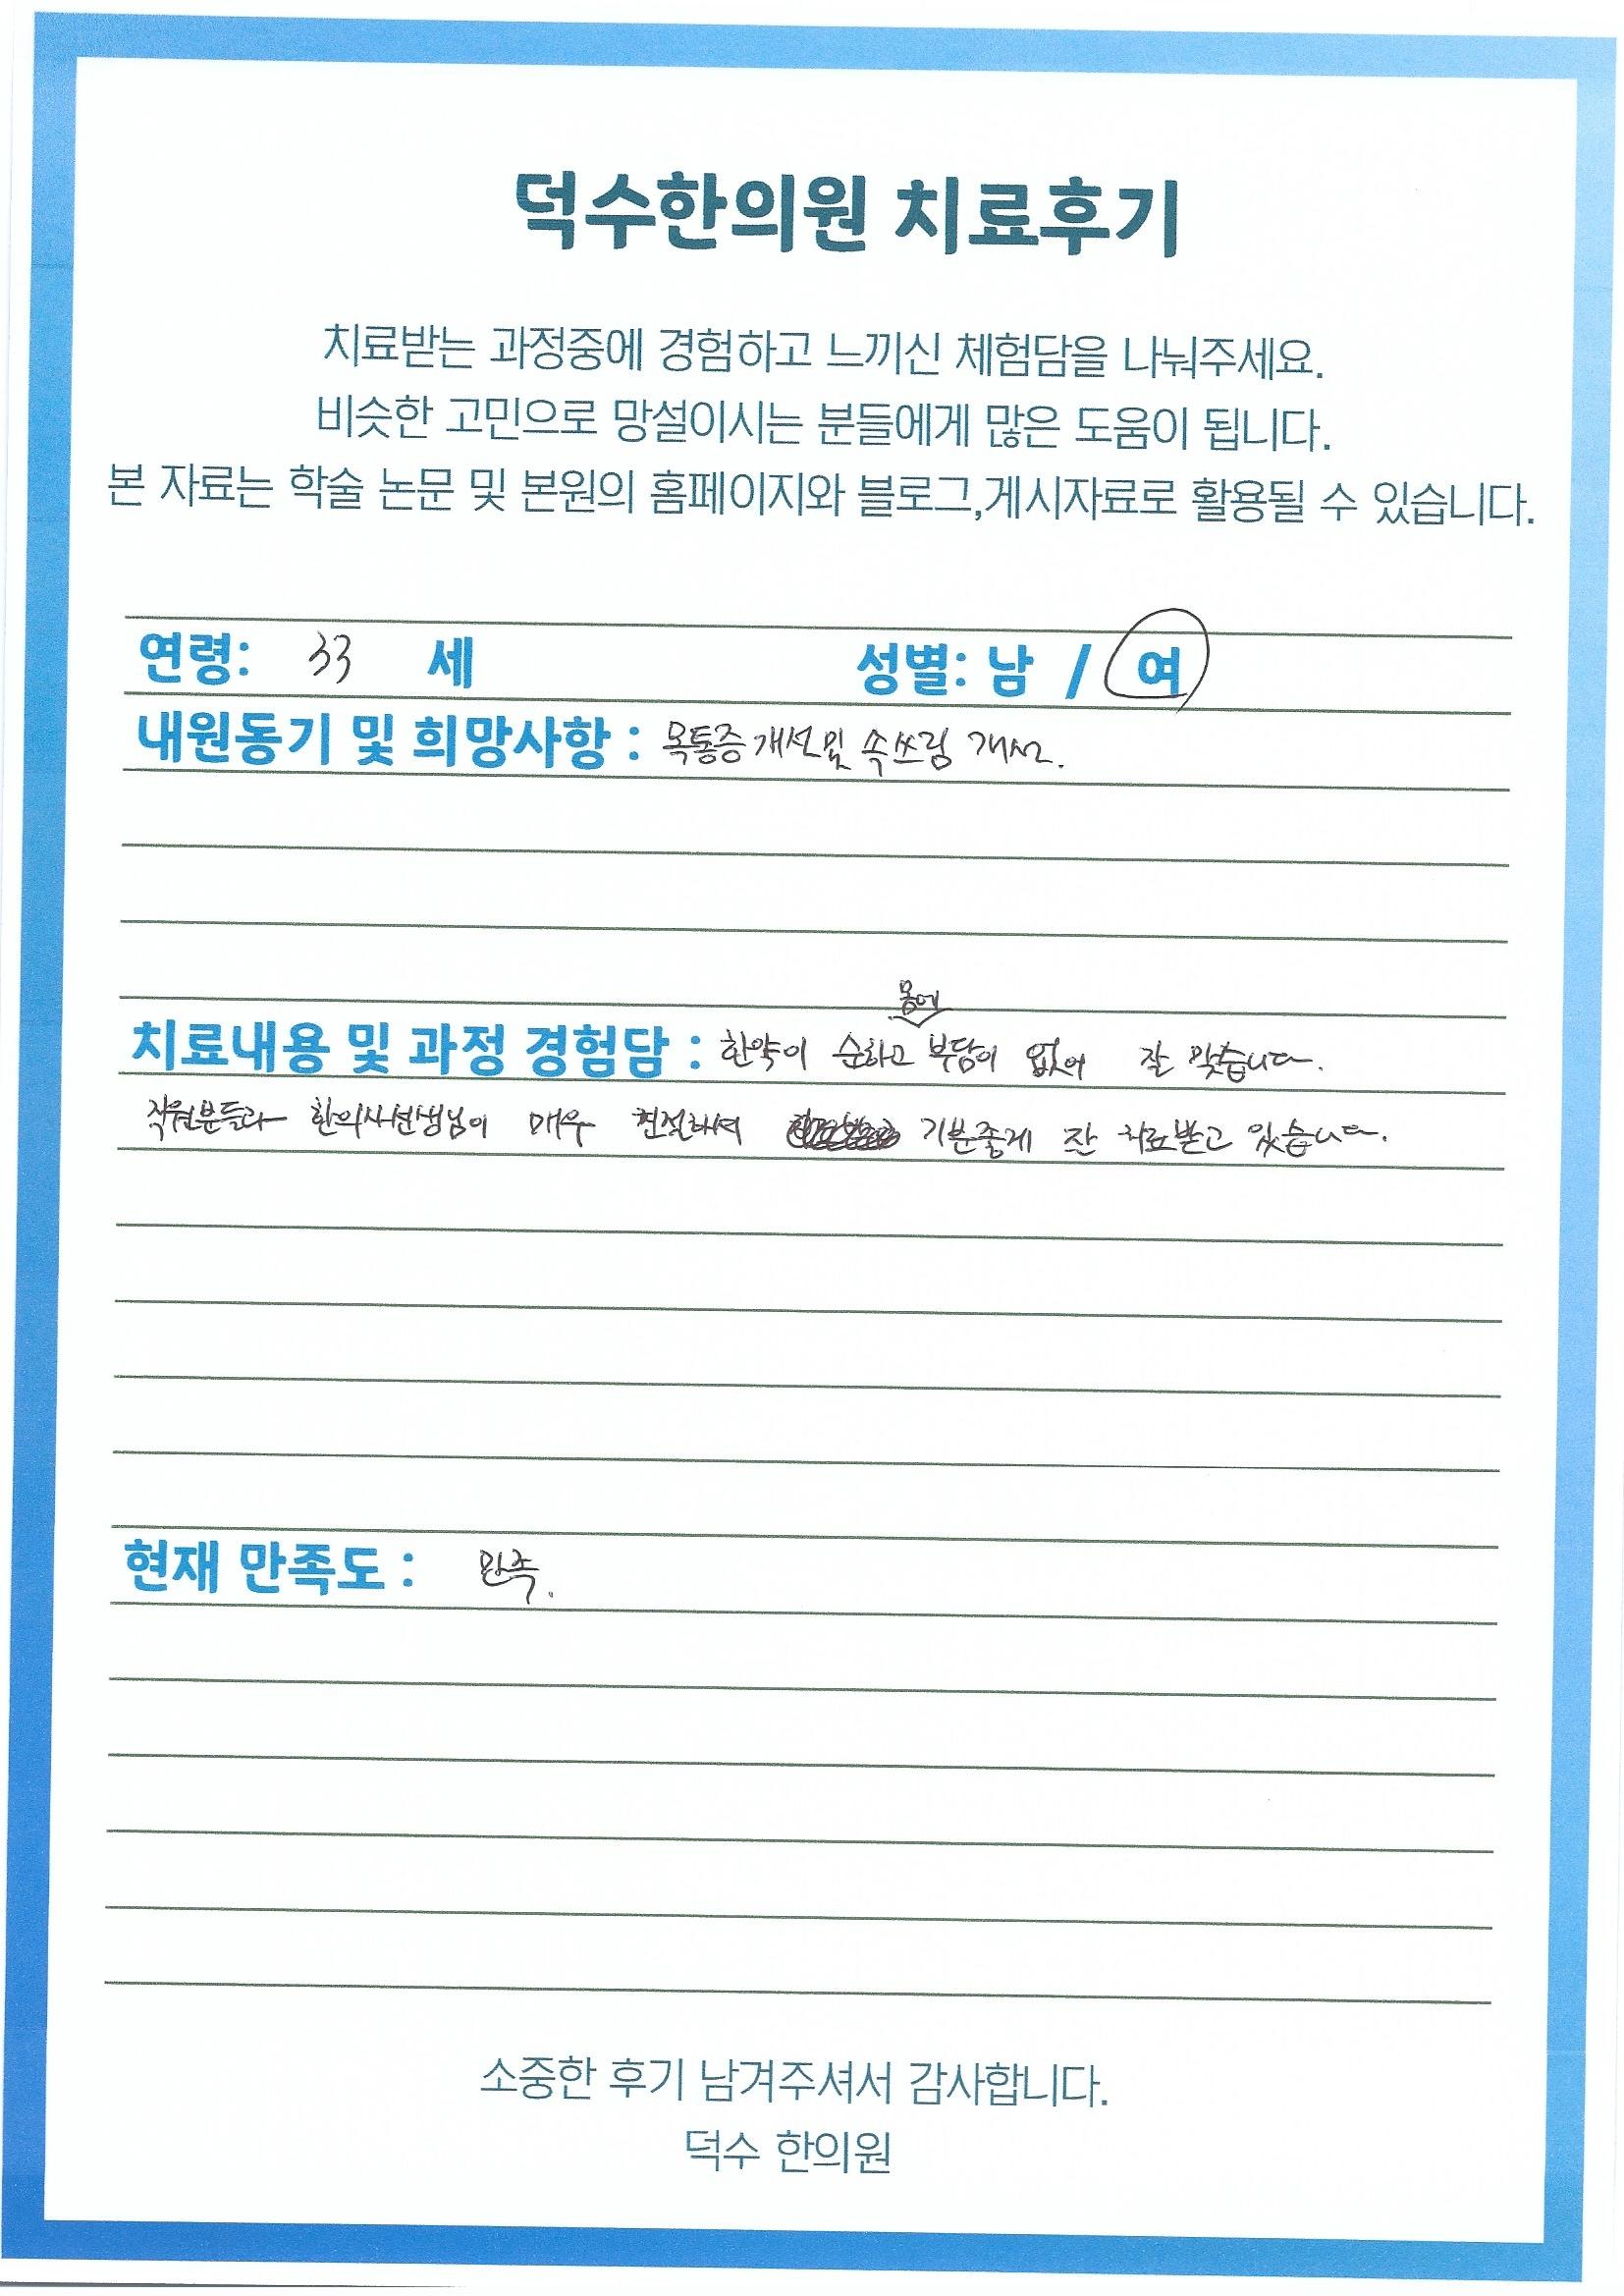 덕수한의원 치료후기
치료받는 과정중에 경험하고 느끼신 체험담을 나눠주세요.
비슷한 고민으로 망설이시는 분들에게 많은 도움이 됩니다.
본 자료는 학술 논문 및 본원의 홈페이지와 블로그,게시자료로 활용될 수 있습니다.
연령: 33 세 성별: 남 / 여
내원동기 및 희망사항 : 목통증 개선 및 속쓰림 개선.
몸에
치료내용 및 과정 경험담 : 한약이 순하고 부담이 없어 잘 맞습니다.
직원분들과 한의사선생님이 매우 친절하셔 기분좋게 잘 치료받고 있습니다.
현재 만족도 : 만족.
소중한 후기 남겨주셔서 감사합니다.
덕수 한의원